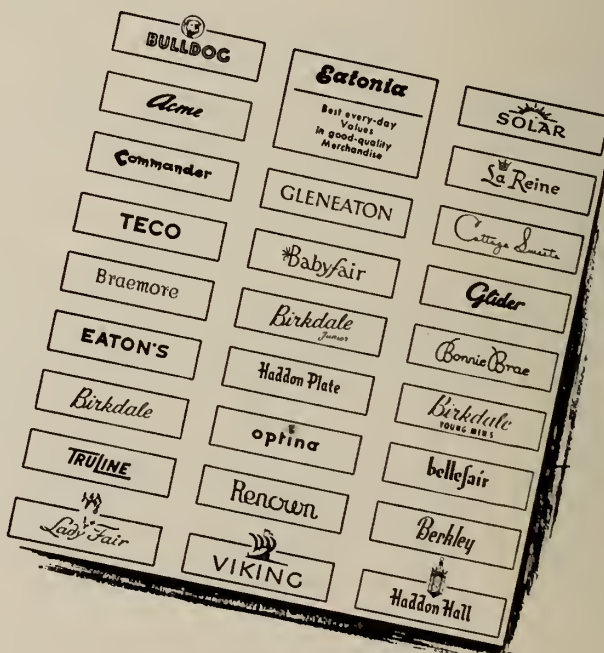 BULLDOG
Acme
Commander
TECO
Braemore
EATON'S
Birkdale
TRULINE
Lady Fair
Eatonia
Best every-day
Values
in good-quality
Merchandise
GLENEATON
Babyfair
Birkdale
Junior
Haddon Plate
optina
Renown
VIKING
SOLAR
La Reine
Cottage Sweets
Glider
Bonnie Brae
Birkdale
YOUNG MEN'S
bellefair
Berkley
Haddon Hall